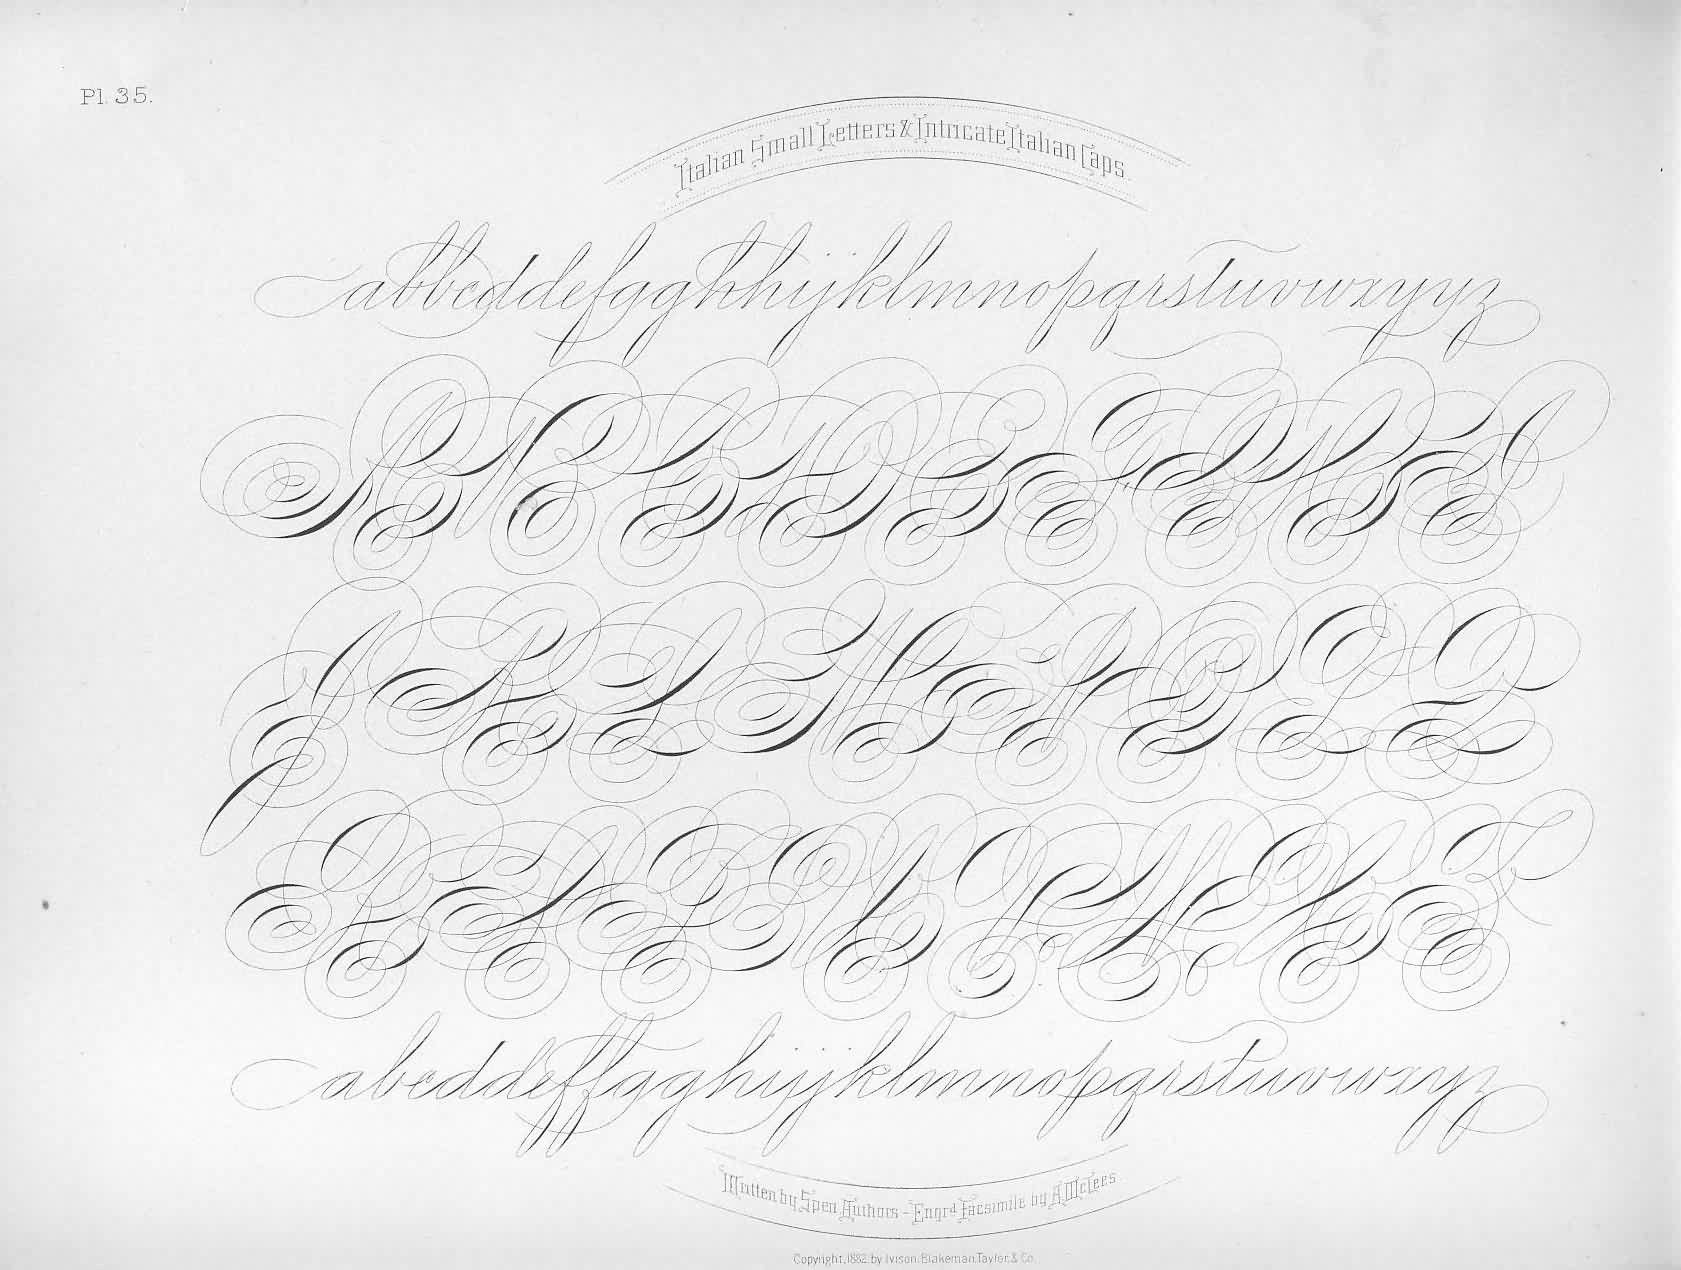 Pl. 35.
Italian Small Letters & Intricate Italian Caps.
abbcddefgghhijklmnopqrstuvwxyyz
A B C D E F G H I
J K L M N O P Q
R S T U V W X Z
abcddeffgghijjklmnopqrstuvwxyz
Written by Spen Authors – Engrd Facsimile by A McLees
Copyright, 1882, by Ivison, Blakeman, Taylor, & Co.